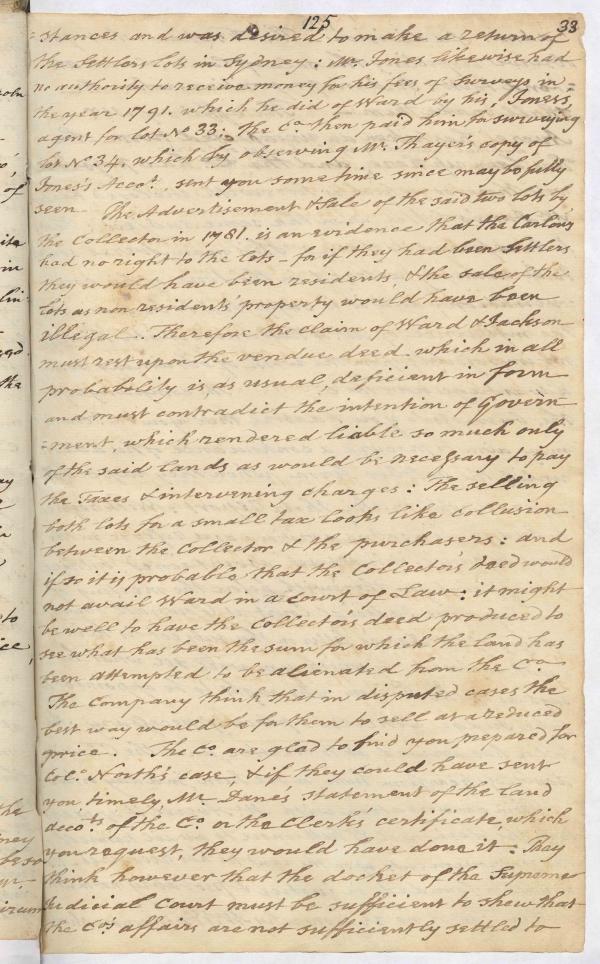 125
33
-stances and was desired to make a return of
the Settlers lots in Sydney: Mr. Jones likewise had
no authority to receive money for his fees of Surveys in
the year 1791. which he did of Ward by his, Jones's,
agent for lot No 33. The Co. then paid him for surveying
lot No 34. which by observing Mr. Thayer's copy of
Jones's Accot. sent you some time since may be fully
seen. The Advertisement & Sale of the said two lots by
the Collector in 1781. is an evidence that the Carlows
had no right to the lots - for if they had been Settlers
they would have been residents, & the sale of the
lots as non residents' property would have been
illegal. Therefore the claim of Ward & Jackson
must rest upon the vendue deed, which in all
probability is, as usual, deficient in form
and must contradict the intention of Govern
=ment, which rendered liable so much only
of the said lands as would be necessary to pay
the Taxes & intervening charges: The selling
both lots for a small tax looks like collusion
between the Collector & the purchasers: and
if so it is probable that the Collector's deed would
not avail Ward in a Court of Law: it might
be well to have the Collector's deed produced to
see what has been the sum for which the land has
been attempted to be alienated from the Co.
The Company think that in disputed cases the
best way would be for them to sell at a reduced
price. The Co. are glad to find you prepared for
Colo. North's case, & if they could have sent
you, timely, Mr. Dane's statement of the land
accots. of the Co. or the Clerk's certificate, which
you request, they would have done it. They
think however that the docket of the Supreme
Judicial Court must be sufficient to shew that
the Co's affairs are not sufficiently settled to